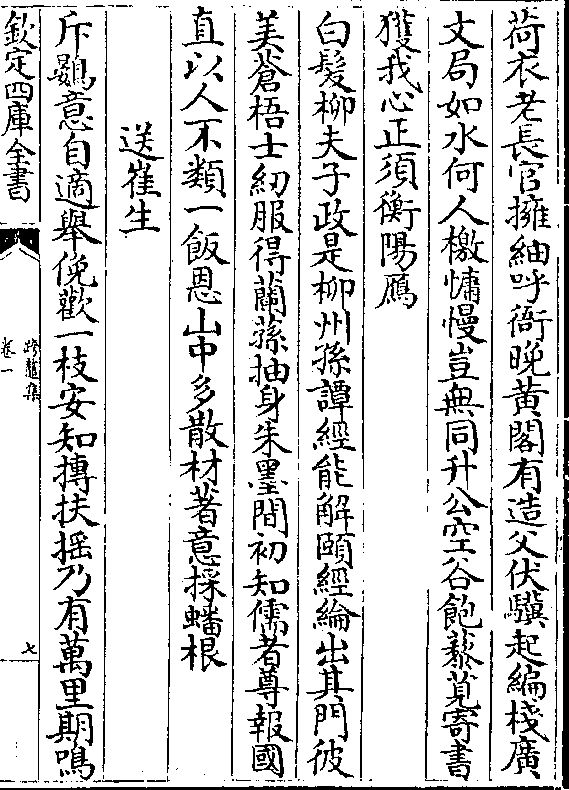 荷衣老長官擁紬呼衙晚黄閣有造父伏驥起編棧廣
文局如水何人檄慵慢豈無同升公空谷飽藜莧寄書
獲我心正須衡陽鴈
白髮柳夫子政是柳州孫譚經能解頤經綸出其門彼
美蒼梧士紉服得蘭蓀抽身朱墨間初知儒者尊報國
直以人不類一飯恩山中多散材著意採蟠根
送崔生
斥鷃意自適舉俛歡一枝安知摶扶揺乃有萬里期鳴
欽定四庫全書
跨鼇集
卷一
七